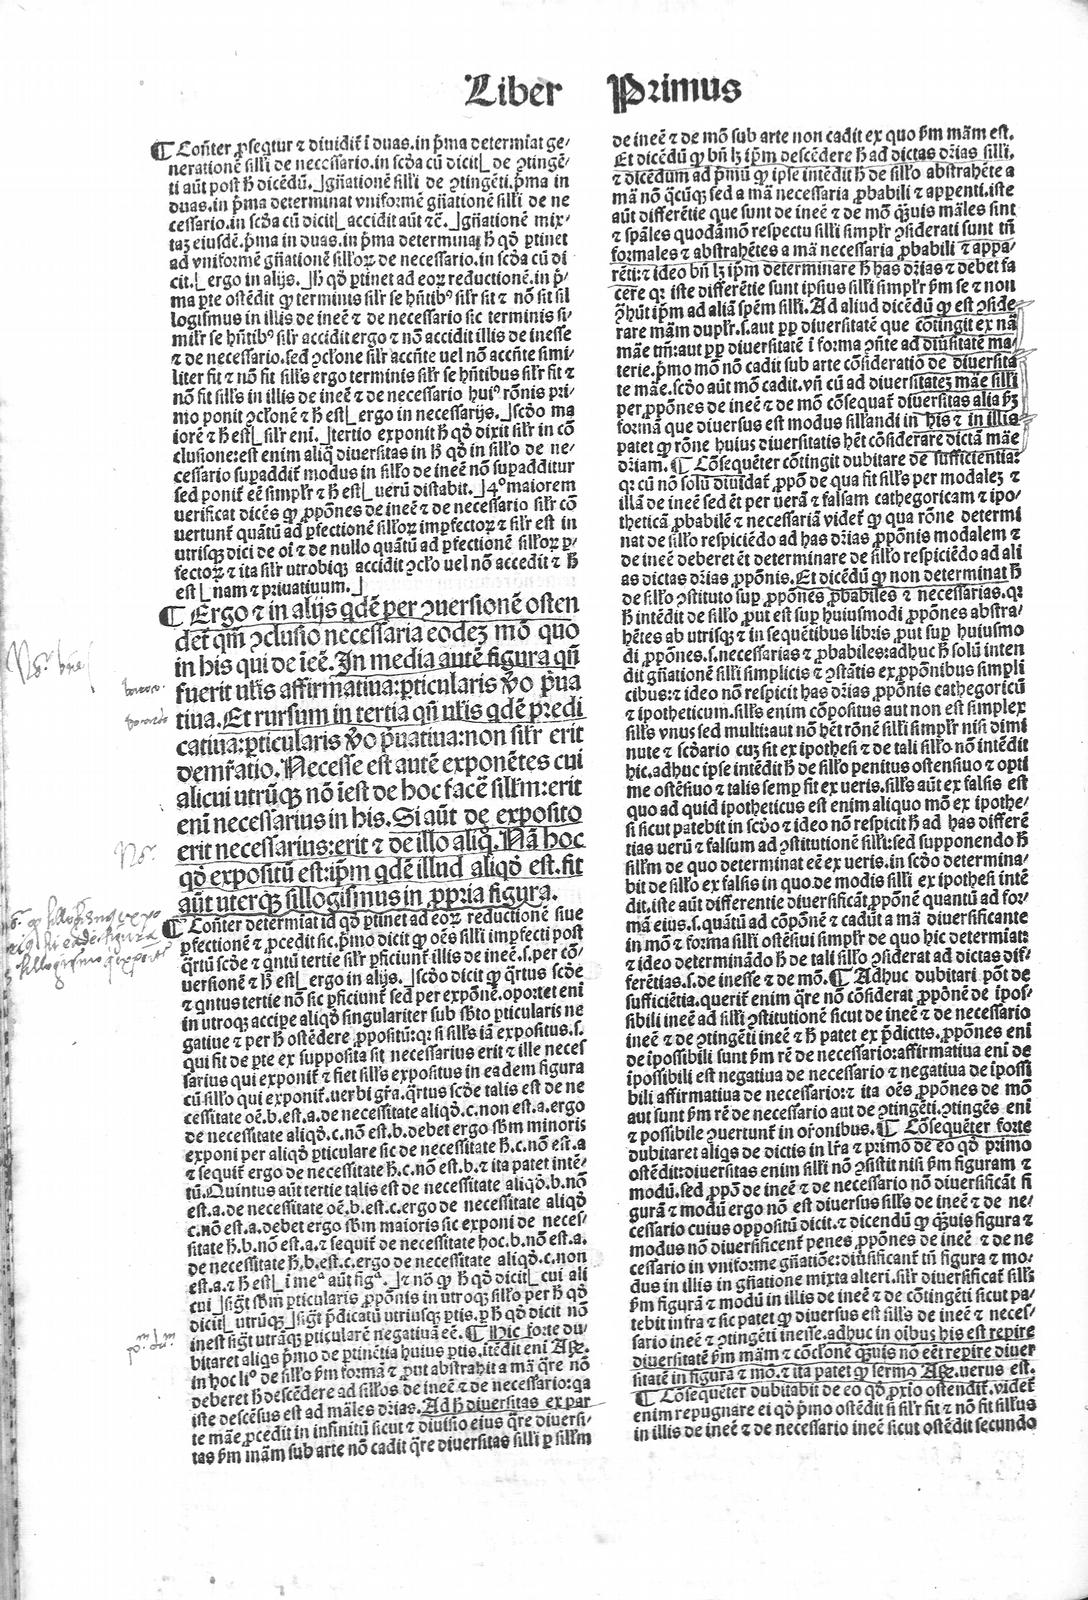 Liber Primus
¶ Cōñter ꝓseqtur ⁊ diuidit̄ ī duas. in p̄ma determīat ge⸗
nerationē silłi de necessario. in scd̄a cū dicit⌊ de ↄtingē⸗
ti aūt post h̄ dicēdū.⌋gñationē silłi de ↄtingēti. p̄ma in
duas. in p̄ma determinat vniformē gñationē silłi de ne
cessario. in scd̄a cū dicit⌊ accidit aūt ⁊c̄.⌋gñationē mix⸗
taꝫ eiusdē. p̄ma in duas. in p̄ma determinat h̄ qd̄ ꝑtinet
ad vniformē gñationē silłoꝝ de necessario. in scd̄a cū di
cit.⌊ ergo in alijs.⌋h̄ qd̄ ꝑtinet ad eoꝝ reductionē. in p̄⸗
ma ꝑte ostēdit ꝙ terminis silr̄ se hñtibꝰ silr̄ fit ⁊ nō fit sil
logismus in illis de ineē ⁊ de necessario sic terminis si⸗
milr̄ se hñtibꝰ silr̄ accidit ergo ⁊ nō accidit illis de inesse
⁊ de necessario. sed ↄclōne silr̄ accñte uel nō accñte simi⸗
liter fit ⁊ nō fit silłs ergo terminis silr̄ se hñtibus silr̄ fit ⁊
nō fit silłs in illis de ineē ⁊ de necessario huiꝰ rōnis pri⸗
mo ponit ↄclōnē ⁊ h̄ est⌊ ergo in necessarijs.⌋scd̄o ma
iorē ⁊ h̄ est⌊ silr̄ eni.⌋tertio exponit h̄ qd̄ dixit silr̄ in cō
clusione: est enim aliq̄ diuersitas in h̄ qd̄ in silło de ne⸗
cessario supaddit̄ modus in silło de ineē nō supadditur
sed ponit̄ eē simplr̄ ⁊ h̄ est⌊ uerū distabit.⌋4º maiorem
verificat dicēs ꝙ ꝓpōnes de ineē ⁊ de necessario silr̄ cō
uertunt̄ quātū ad ꝑfectionē silłoꝝ imꝑfectoꝝ ⁊ silr̄ est in
utrisqꝫ dici de oī ⁊ de nullo quātū ad ꝑfectionē silłoꝝ ꝑ⸗
fectoꝝ ⁊ ita silr̄ utrobiqꝫ accidit ↄclo uel nō accedit ⁊ h̄
est⌊ nam ⁊ priuatiuum.⌋
¶ Ergo ⁊ in alijs qdē per ↄuersionē osten
det̄ qm̄ ↄclusio necessaria eodeꝫ mō quo
in his qui de ieē. In media autē figura qñ
fuerit ulīs affirmatiua: ꝑticularis v̄o p̄ua
tiua. Et rursum in tertia qñ ulīs qdē predi
catiua: ꝑticularis v̄o p̄uatiua: non silr̄ erit
demr̄atio. Necesse est autē exponētes cui
alicui utrūqꝫ nō īest de hoc facē sillm̄: erit
enī necessarius in his. Si aūt de exposito
erit necessarius: erit ⁊ de illo aliq̊. Nā hoc
qd̄ expositū est: ip̄m qdē illud aliqd̄ est. fit
aūt uterqꝫ sillogismus in ꝓpria figura.
¶ Cōñter determīat id qd̄ ꝑtinet ad eoꝝ reductionē siue
ꝑfectionē ⁊ ꝓcedit sic. p̄mo dicit ꝙ oēs silłi imꝑfecti post
q̄rtū scd̄e ⁊ q̄ntū tertie silr̄ ꝑficiunt̄ illis de ineē. s. per cō⸗
uersionē ⁊ h̄ est⌊ ergo in alijs.⌋scd̄o dicit ꝙ q̄rtus scd̄e
⁊ qntus tertie nō sic ꝑficiunt̄ sed per exponē. oportet enī
in utroqꝫ accipe aliqd̄ singulariter sub sb̄to ꝑticularis ne
gatiue ⁊ per h̄ ostēdere ꝓpositū: qꝛ si silłs iā expositus. s.
qui fit de ꝑte ex supposita sit necessarius erit ⁊ ille neces
sarius qui exponit̄ ⁊ fiet silłs expositus in eadem figura
cū silło qui exponit̄. uerbi gr̄a. q̄rtus scd̄e talis est de ne
cessitate oē. b. est. a. de necessitate aliqd̄. c. non est. a. ergo
de necessitate aliqd̄. c. nō est. b. debet ergo sb̄m minoris
exponi per aliqd̄ ꝑticulare sic de necessitate h̄. c. nō est. a
⁊ sequit̄ ergo de necessitate h̄. c. nō est. b. ⁊ ita patet intē⸗
tū. Quintus aūt tertie talis est de necessitate aliqd̄. b. nō
est. a. de necessitate oē. b. est. c. ergo de necessitate aliqd̄
c. nō est. a. debet ergo sb̄m maioris sic exponi de neces⸗
sitate h̄. b. nō est. a. ⁊ sequit̄ de necessitate hoc. b. nō est. a.
de necessitate h̄. b. est. c. ergo de necessitate aliqd̄. c. non
est. a. ⁊ h̄ est⌊ ī meª aūt figª.⌋⁊ nō ꝙ h̄ qd̄ dicit⌊ cui ali
cui⌋sigt̄ sb̄m ꝑticularis ꝓpōnis in utroqꝫ silło per h̄ qd̄
dicit⌊ utrūqꝫ⌋sigt̄ p̄dicatū utriusqꝫ ꝑtis. ꝑ h̄ qd̄ dicit nō
inest sigt̄ utrāqꝫ ꝑticularē negatiuā eē. ¶ Hic forte du⸗
bitaret aliqs p̄mo de ꝑtinētia huius ꝑtis. itēdit eni Aꝝ.
in hoc liº de silło ꝑm formā ⁊ ꝓut abstrahit a mā q̄re nō
deberet h̄ descēdere ad silłos de ineē ⁊ de necessario: qa
iste descēsus est ad māles dr̄ias. Ad h̄ diuersitas ex par
te māe ꝓcedit in infinitū sicut ⁊ diuisio eius q̄re diuersi⸗
tas ꝑm mām sub arte nō cadit q̄re diuersitas silłi ꝑ sillm̄
de ineē ⁊ de mō sub arte non cadit ex quo ꝑm mām est.
Et dicēdū ꝙ bñ lꝫ ip̄m descēdere h̄ ad dictas dr̄ias silłi.
⁊ dicēdum ad p̄mū ꝙ ipse intēdit h̄ de silło abstrahēte a
mā nō q̄cūqꝫ sed a mā necessaria ꝓbabili ⁊ apparenti. iste
aūt differētie que sunt de ineē ⁊ de mō q̄uis māles sint
⁊ sp̄ales quodāmō respectu silłi simplr̄ ↄsiderati sunt tñ
formales ⁊ abstrahētes a mā necessaria ꝓbabili ⁊ appa⸗
rēti: ⁊ ideo bñ lꝫ ip̄m determinare h̄ has dr̄ias ⁊ debet fa
cere qꝛ iste differētie sunt ipsius silłi simplr̄ ꝑm se ⁊ non
ↄ̄hūt ip̄m ad aliā spēm silłi. Ad aliud dicēdū ꝙ est ↄside
rare mām duplr̄. s. aut ꝓp diuersitatē que cōtingit ex nā
māe tm̄: aut ꝓp diuersitatē ī forma ↄñte ad diūsitatē ma⸗
terie. p̄mo mō nō cadit sub arte cōsideratio de diuersita
te māe. scd̄o aūt mō cadit. vñ cū ad diuersitateꝫ māe silłi
per ꝓpōnes de ineē ⁊ de mō cōsequat̄ diuersitas alia ꝑm
formā que diuersus est modus sillandi in his ⁊ in illis
patet ꝙ rōne huius diuersitatis hēt cōsiderare dictā māe
dr̄iam. ¶ Cōsequēter cōtingit dubitare de sufficientia:
qꝛ cū nō solū diuidat̄ ꝓpō de qua fit silłs per modaleꝫ ⁊
illā de ineē sed ēt per uerā ⁊ falsam cathegoricam ⁊ ipo⸗
theticā ꝓbabilē ⁊ necessariā videt̄ ꝙ qua rōne determi
nat de silło respiciēdo ad has dr̄ias ꝓpōnis modalem ⁊
de ineē deberet ēt determinare de silło respiciēdo ad ali
as dictas dr̄ias ꝓpōnis. Et dicēdū ꝙ non determinat h̄
de silło ↄstituto sup ꝓpōnes ꝓbabiles ⁊ necessarias. qꝛ
h̄ intēdit de silło ꝓut est sup huiusmodi ꝓpōnes abstra⸗
hētes ab utrisqꝫ ⁊ in sequētibus libris ꝓut sup huiusmo
di ꝓpōnes. s. necessarias ⁊ ꝓbabiles: adhuc h̄ solū inten
dit gñationē silłi simplicis ⁊ ↄstātis ex ꝓpōnibus simpli
cibus: ⁊ ideo nō respicit has dr̄ias ꝓpōnis cathegoricū
⁊ ipotheticum. silłs enim cōpositus aut non est simplex
silłs vnus sed multi: aut nō hēt rōnē silłi simplr̄ nisi dimi
nute ⁊ scd̄ario cuꝫ fit ex ipothesi ⁊ de tali silło nō intēdit
hic. adhuc ipse intēdit h̄ de silło penitus ostensiuo ⁊ opti
me ostēsiuo ⁊ talis semp fit ex ueris. silłs aūt ex falsis est
quo ad quid ipotheticus est enim aliquo mō ex ipothe⸗
si sicut patebit in scd̄o ⁊ ideo nō respicit h̄ ad has differē
tias uerū ⁊ falsum ad ↄstitutionē silłi: sed supponendo h̄
sillm̄ de quo determinat eē ex ueris. in scd̄o determina⸗
bit de silło ex falsis in quo de modis silłi ex ipothesi intē
dit. iste aūt differentie diuersificāt ꝓpōnē quantū ad for⸗
mā eius. s. quātū ad cōpōnē ⁊ cadūt a mā diuersificante
in mō ⁊ forma silłi ostēsiui simplr̄ de quo hic determīat:
⁊ ideo determināndo h̄ de tali silło ↄsiderat ad dictas dif⸗
ferētias. s. de inesse ⁊ de mō. ¶ Adhuc dubitari pōt de
sufficiētia. querit̄ enim q̄re nō cōsiderat ꝓpōnē de ipos⸗
sibili ineē ad silłi ↄstitutionē sicut de ineē ⁊ de necessario
ineē ⁊ de ↄtingēti ineē ⁊ h̄ patet ex p̄dictis. ꝓpōnes enī
de ipossibili sunt ꝑm rē de necessario: affirmatiua enī de
ipossibili est negatiua de necessario ⁊ negatiua de ipossi
bili affirmatiua de necessario: ⁊ ita oēs ꝓpōnes de mō
aut sunt ꝑm rē de necessario aut de ↄtingēti. ↄtingēs enī
⁊ possibile ↄuertunt̄ in or̄onibus. ¶ Cōsequēter forte
dubitaret aliqs de dictis in lr̄a ⁊ primo de eo qd̄ primo
ostēdit: diuersitas enim silłi nō ↄsistit nisi ꝑm figuram ⁊
modū. sed ꝓpō de ineē ⁊ de necessario nō diuersificāt fi
gurā ⁊ modū ergo nō est diuersus silłs de ineē ⁊ de ne⸗
cessario cuius oppositū dicit. ⁊ dicendū ꝙ q̄uis figura ⁊
modus nō diuersificent̄ penes ꝓpōnes de ineē ⁊ de ne
cessario in vniforme gñatiōe: diūsificant̄ tñ figura ⁊ mo⸗
dus in illis in gñatione mixta alteri. silr̄ diuersificat̄ silłs
ꝑm figurā ⁊ modū in illis de ineē ⁊ de cōtingēti sicut pa⸗
tebit infra ⁊ sic patet ꝙ diuersus est silłs de ineē ⁊ neces⸗
sario ineē ⁊ ↄtingēti inesse. adhuc in oībus his est repire
diuersitatē ꝑm mām ⁊ cōclōnē q̄uis nō eēt repire diuer
sitatē in figura ⁊ mō. ⁊ ita patet ꝙ sermo Aꝝ. uerus est.
¶ Cōsequēter dubitabit de eo qd̄ ꝓxīo ostendit. videt̄
enim repugnare ei qd̄ p̄mo ostēdit si silr̄ fit ⁊ nō fit silłus
in illis de ineē ⁊ de necessario ineē sicut ostēdit secundo